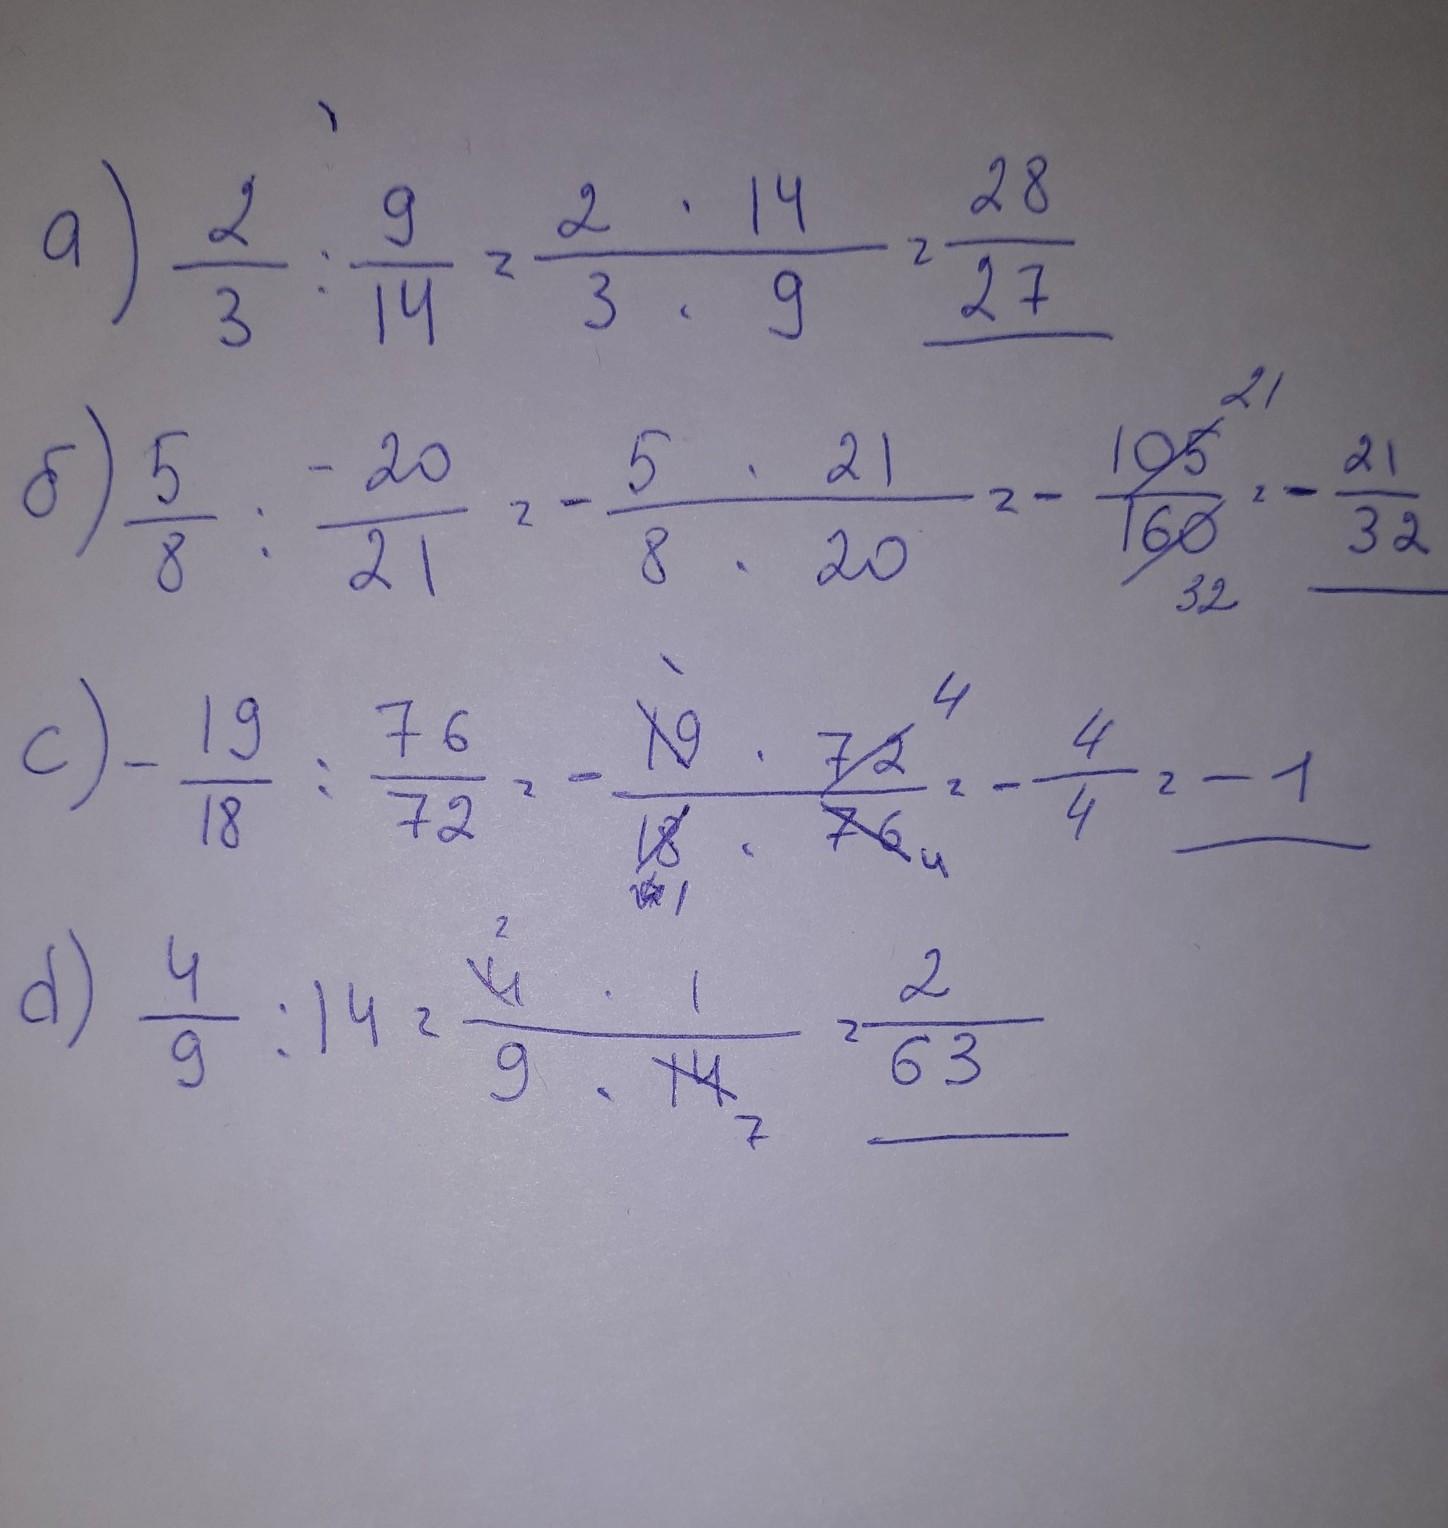 а) 2/3 : 9/14 = 2 · 14 / 3 · 9 = 28/27
б) 5/8 : -20/21 = - 5 · 21 / 8 · 20 = - 105/160 21 32 = - 21/32
c) - 19/18 : 76/72 = - 19 · 72 / 18 · 76 4 1 4 = - 4/4 = - 1
d) 4/9 : 14 = 4 · 1 / 9 · 14 2 7 = 2/63